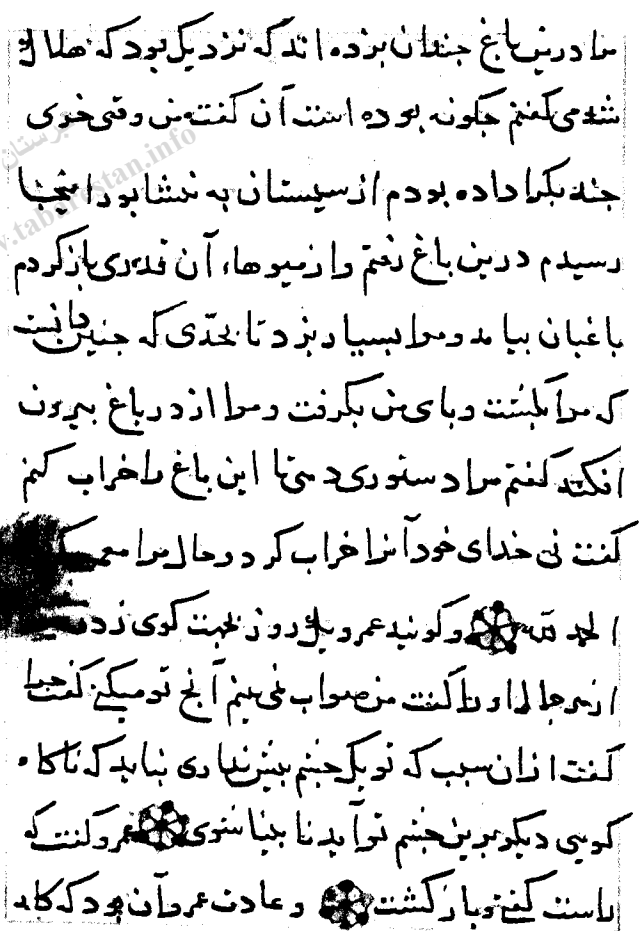 مرا درین باغ چندان بزده اند که نزدیک بود که هلاک
شدمی گفتم چگونه بوده است آن گفت من وقتی خری
چند بکرا داده بودم از سیستان به نیشابور اینجا
رسیدم درین باغ رفتم و از میوهاء آن قدری باز کردم
باغبان بیامد و مرا بسیار بزد تا بحدی که چنین دانست
که مرا بکشت و پای من بگرفت و مرا از در باغ بیرون
افکند گفتم مرا دستوری دهی تا این باغ را خراب کنم
گفت نی خدای خود آنرا خراب کرد و حال مرا
الحمد لله وگویند عمرو یک روز بجهت گوی زدن
از سرجا او را گفت من صواب نمی بینم آنچ تو میکنی گفت چرا
گفت از ان سبب که تو یک چشم بیش نداری نباید که ناکاه
گویی دیگر برین چشم تو آید نا بینا شوی عمرو گفت که
راست گفتی و باز گشت و عادت عمرو آن بود که
www.tabarestan.info